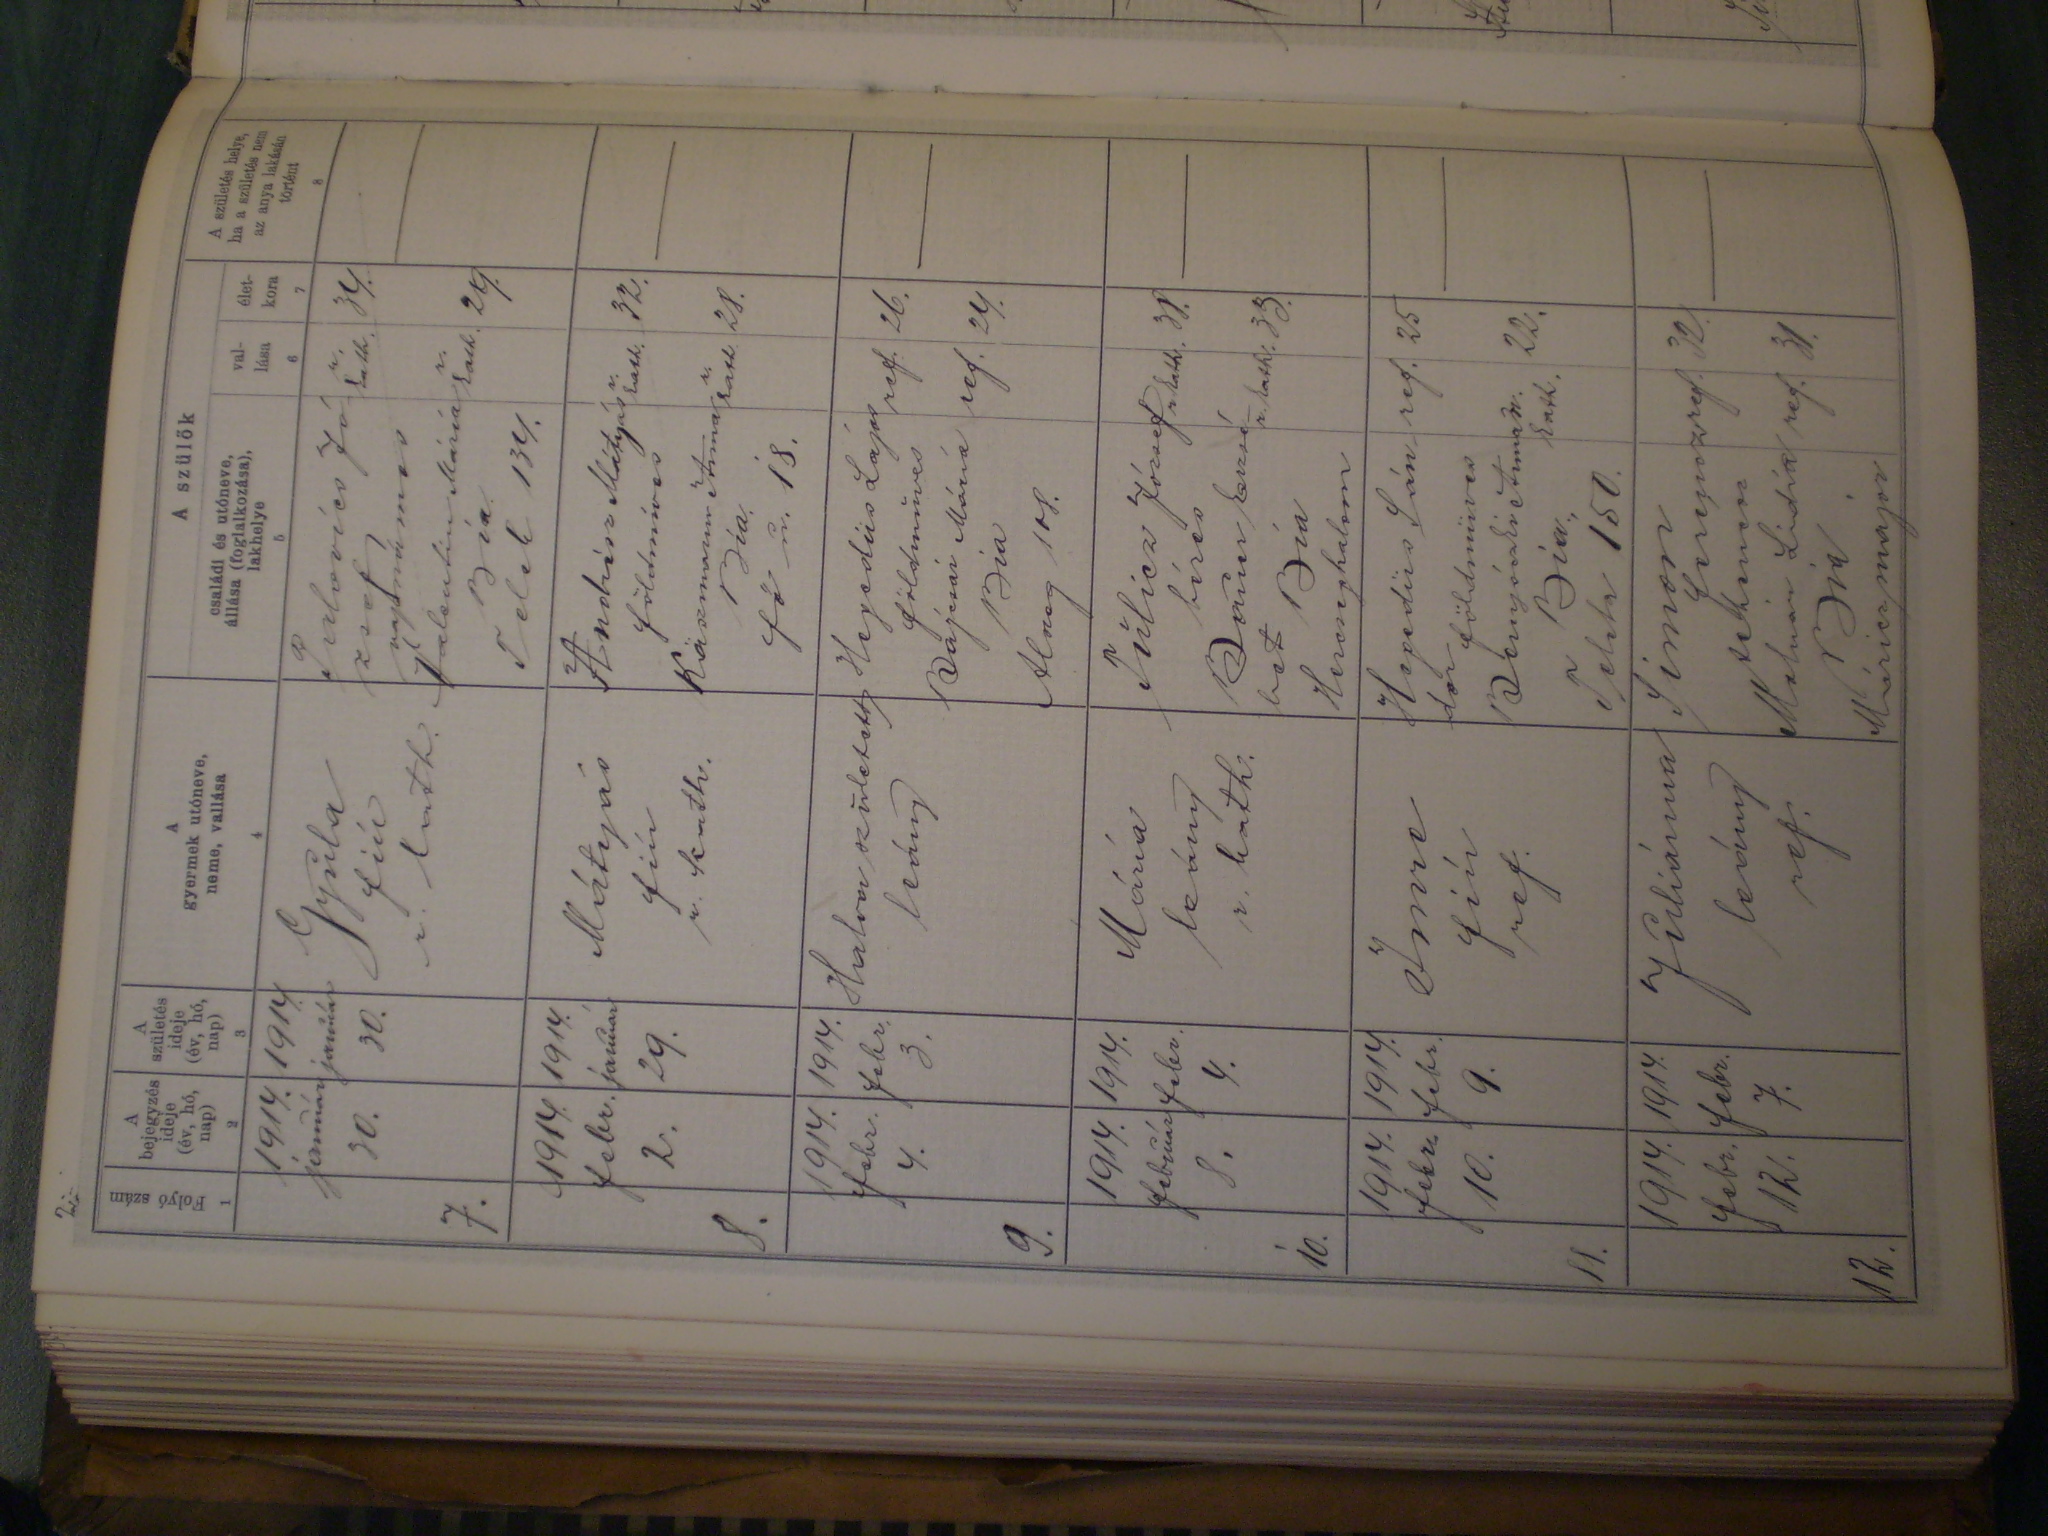 A szülők
Folyó szám
A
bejegyzés
ideje
(év, hó,
nap)
A
születés
ideje
(év, hó,
nap)
A
gyermek utóneve,
neme, vallása
családi és utóneve,
állása (foglalkozása),
lakhelye
val-
lása
élet-
kora
A születés helye,
ha a születés nem
az anya lakásán
történt
1
2
3
4
5
6
7
8
7.
1914.
január
30.
1914.
január
30.
Gyula
fiú
r. kath.
József
napszámos
r.
kath.
34.
Valentin Mária
r.
kath.
Bia
Telek 134.
8.
1914.
febr.
2.
1914.
január
29.
Mátyás
fiú
r. kath.
Mátyás
r.
kath.
32.
földmíves
Anna
r.
kath.
28.
Bia
Fő u. 18.
9.
1914.
febr.
4.
1914.
febr.
3.
Halva született
leány
Hegedüs Lajos
ref.
26.
földmüves
Mária
ref.
24.
Bia
108.
10.
1914.
február
8.
1914.
febr.
4.
Mária
leány
r. kath.
József
r. kath.
38.
béres
Bauer Erzsé
bet
r. kath.
33.
Bia
Herczeghalom
11.
1914.
febr.
10.
1914.
febr.
9.
Imre
fiú
ref.
Hegedüs Sán
dor
ref.
25
földmüves
Anna
r.
kath.
22.
Bia
150.
12.
1914.
febr.
12.
1914.
febr.
7.
Juliánna
leány
ref.
Simon
Ferencz
ref.
32.
Lidia
ref.
31.
Bia
Móriczmajor